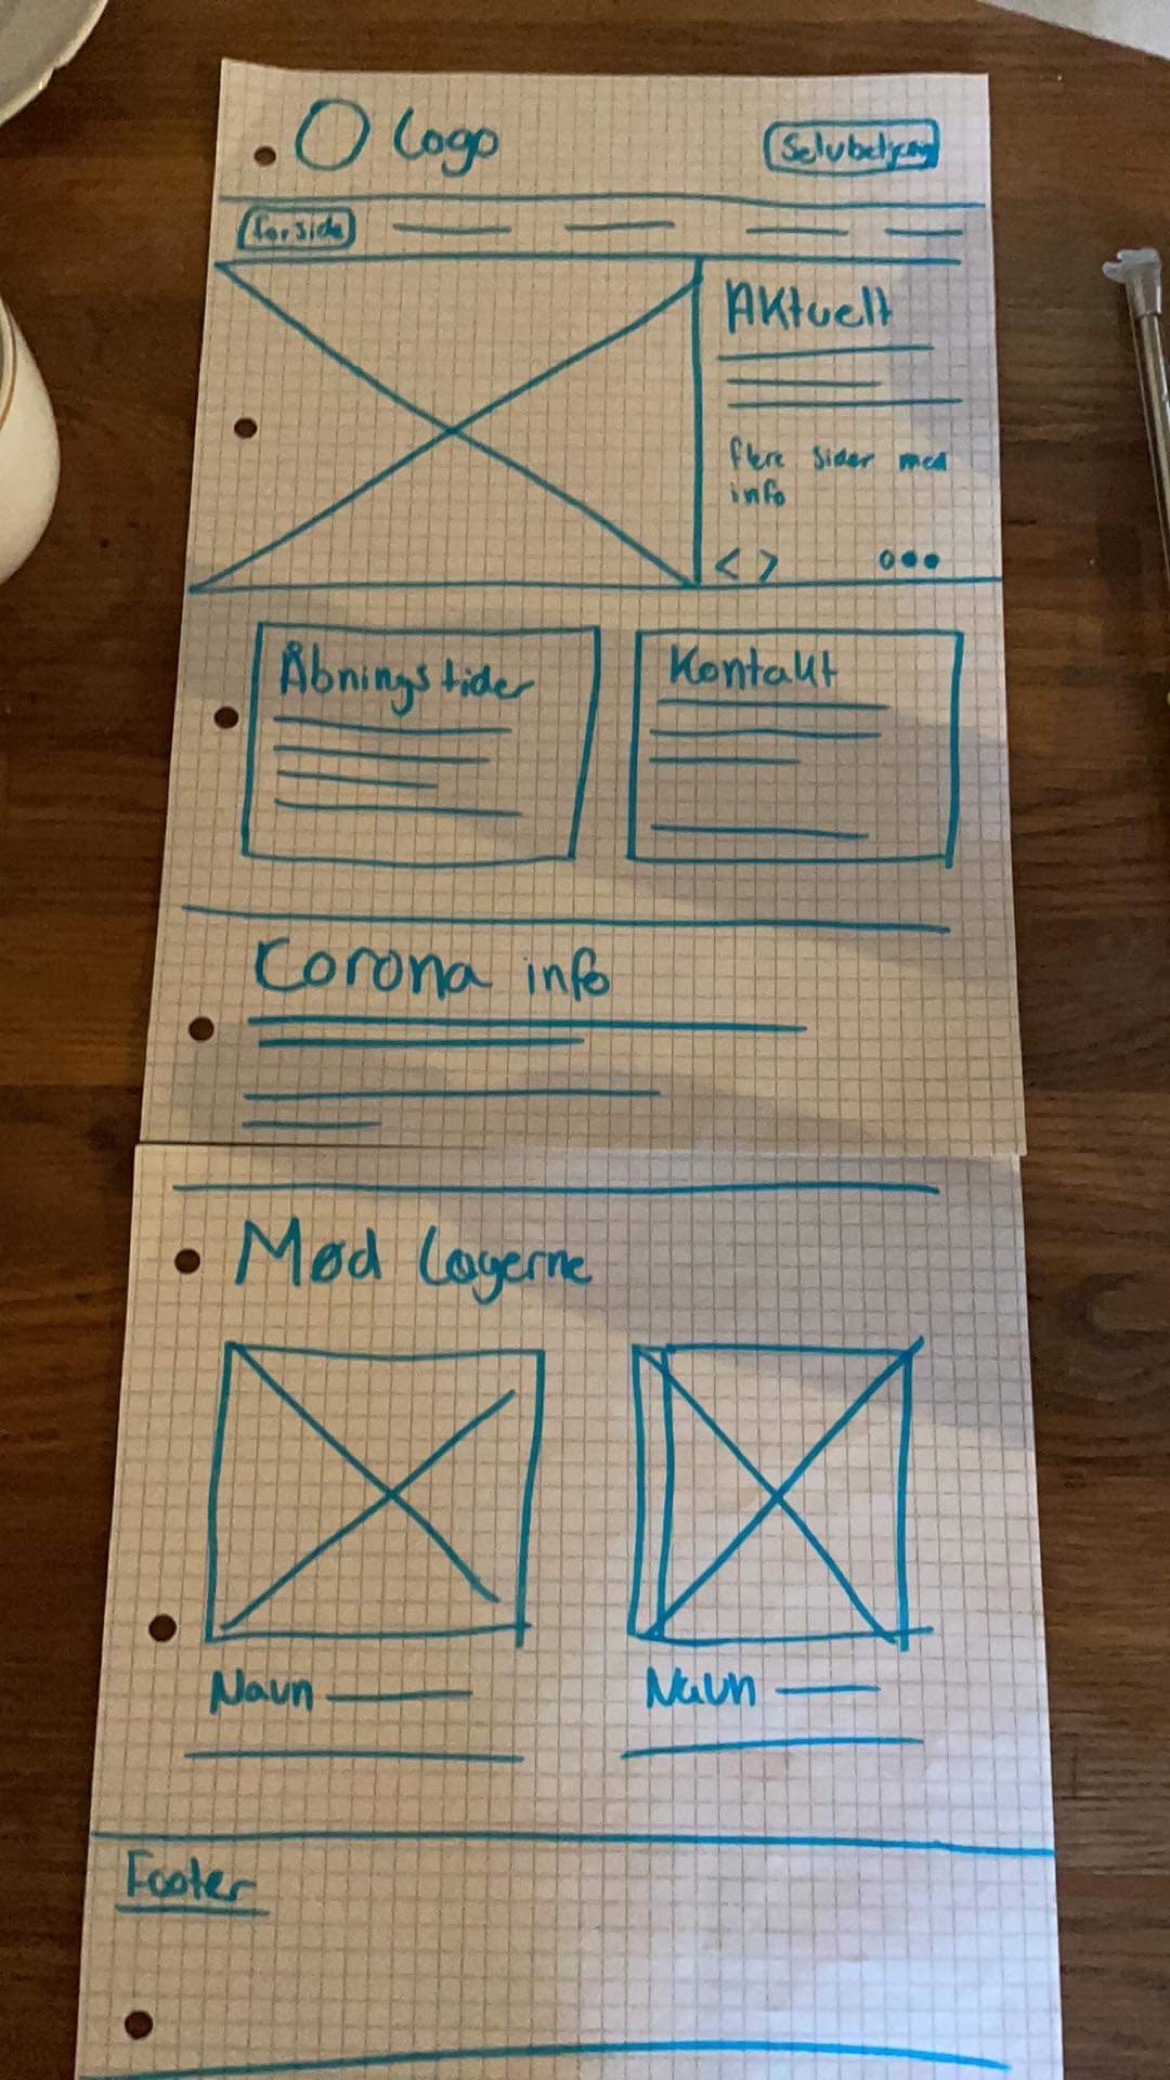 Logo
Selvbetjening
Forside
Aktuelt
flere sider med
info
< >
Åbningstider
Kontakt
Corona info
Mød lægerne
Navn
Navn
Footer